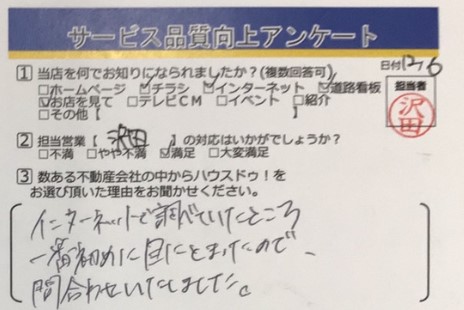 サービス品質向上アンケート
日付12-6
1 当店を何でお知りになられましたか？(複数回答可)
□ホームページ ☑チラシ ☑インターネット ☑道路看板
☑お店を見て □テレビCM □イベント □紹介
□その他【 】
担当者
沢田
2 担当営業【 沢田 】の対応はいかがでしょうか？
□不満 □やや不満 ☑満足 □大変満足
3 数ある不動産会社の中からハウスドゥ！を
お選び頂いた理由をお聞かせください。
インターネットで調べていたところ
一番初めに目にとまったので、
問合わせいたしました。